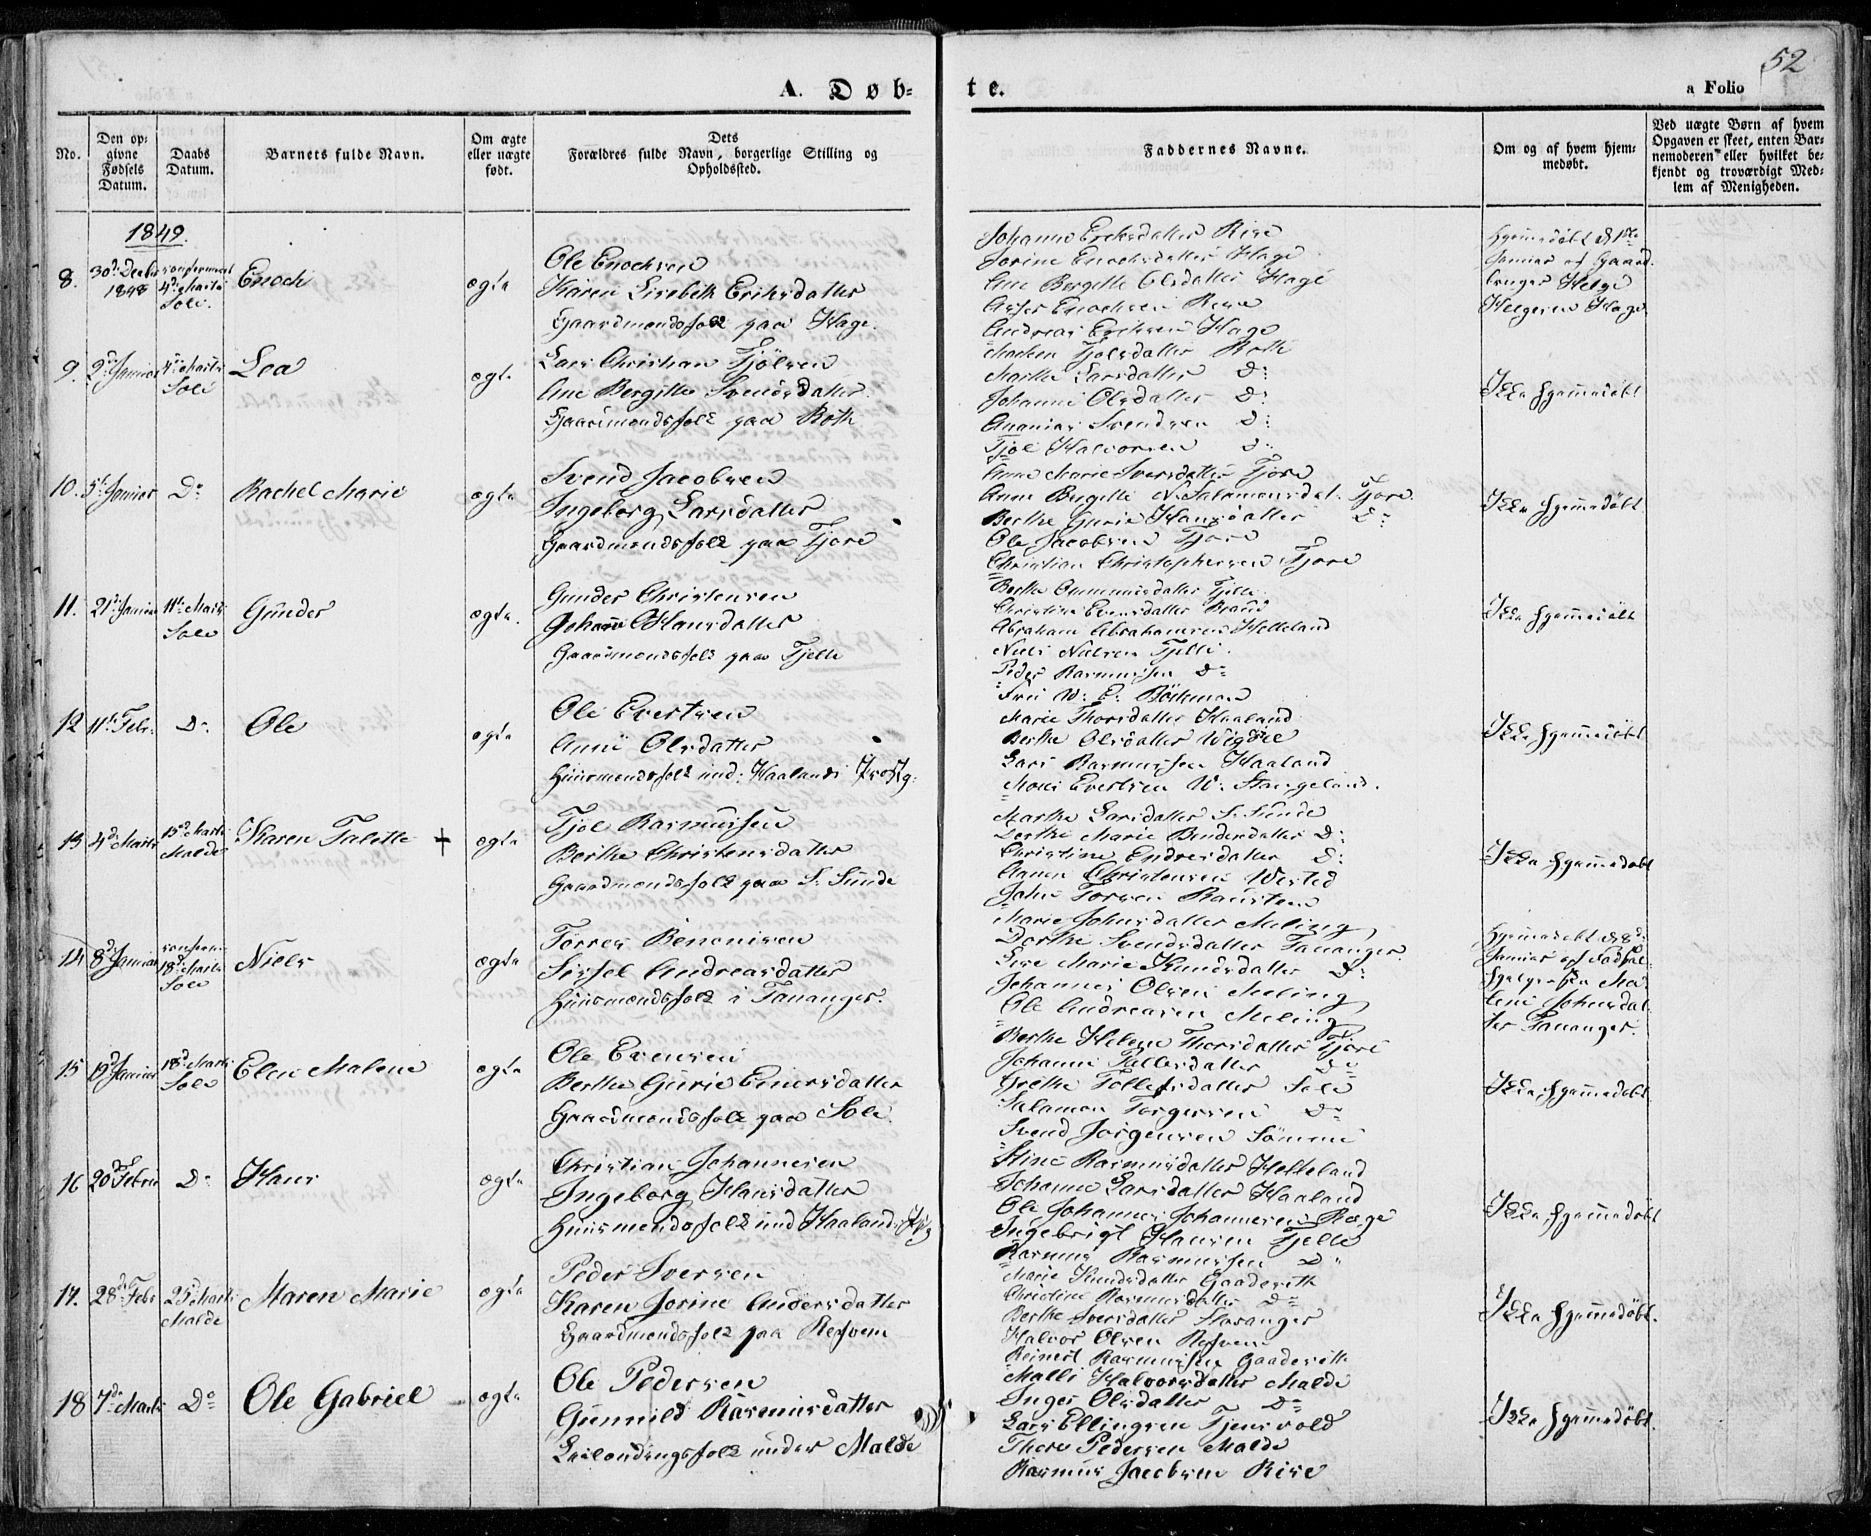 52
A. Døb-
te.
a Folio
No.
Den op-
givne
Fødsels
Datum.
Daabs
Datum.
Barnets fulde Navn.
Om ægte
eller uægte
født.
Dets
Forældres fulde Navn, borgerlige Stilling og
Opholdssted.
Faddernes Navne.
Om og af hvem hjem-
medøbt.
Ved uægte Børn af hvem
Opgaven er skeet, enten Bar-
nemoderen eller hvilket be-
kjendt og troværdigt Med-
lem af Menigheden.
1849.
8.
30te Decbr
1848
4de Marts
Sole.
Enoch
ægte
Ole Enochsen
Karen Lisebeth Eriksdatter
Gaardmandsfolk paa Hage.
Johanne Eriksdatter Rise
Sorine Enochsdatter Hage
Ane Bergitte Olsdatter Hage
Enochsen Risa
Andreas Eriksen Hage
Hjemmedøbt d 1ste
Januar af Gaard
bruger Helge
Helgesen Hage.
9.
2den Januar
4de Marts
Sole
Lea
ægte
Lars Christian Tjølsen
Ane Bergitte Svendsdatter
Gaardmandsfolk paa Roth
Maren Tjølsdatter Roth
Marthe Larsdatter D:
Johanne Olsdatter D:
Ananias Svendsen D:
Tjøl Halvorsen D:
Ikke hjemmedøbt
10.
5te Januar
Do
Rachel Marie
ægte
Svend Jacobsen
Ingeborg Larsdatter
Gaardmandsfolk paa Tjore
Anne Marie Iversdatter Tjore
Anne Birgitte N. Salamonsdat. Tjore.
Berthe Gurie Hansdatter D:
Ole Jacobsen Tjore
Christian Christophersen Tjore
Ikke hjemmedøbt
11.
21de Januar
11te Marts
Sole
Gunder
ægte.
Gunder Christensen
Johanne Hansdatter
Gaardmandsfolk paa Tjelle
Berthe Tjelle
Christine Evensdatter
Abraham Abrahamsen Helleland
Niels Nielsen Tjelle.
Peder Rasmussen D:
Ikke hjemmedøbt
12
11te Febr.
Do
Ole
ægte
Ole Evertsen
Anne Olsdatter
Huusmandsfolk und: Haalands Præstg:
Fru W: C: Böckman
Marie Thorsdatter Haaland
Berthe Olsdatter Wigdel
Lars Rasmussen Haaland
Mons Evertsen W: Stangeland.
Ikke hjemmedøbt
13
4de Marts
15de Marts
Malde
Karen Talette +
ægte
Tjøl Rasmussen
Berthe Christensdatter
Gaardmandsfolk paa S. Sunde
Marthe Larsdatter S. Sunde
Berthe Marie D:
Christine Endresdatter D:
Christensen
John Torsen
Ikke hjemmedøbt
14
8de Januar
18de Marts
Sole
Niels
ægte
Torres Benonisen
Sissel Andreasdatter
Huusmandsfolk i Tananger.
Marie Johnsdatter Meling
Dorthe Svendsdatter Tananger.
Marie Knudsdatter D:
Johannes Olsen Meling
Ole Andreasen Meling
Hjemmedøbt d 8de
Januar af Fødsel-
hjelpersken Ma-
lene Johnsdat-
ter Tananger.
15
19de Januar
18de Marts
Sole
Elen Malene
ægte
Ole Evensen
Berthe Gurie Einersdatter
Gaardmandsfolk paa Sole
Berthe Helene Thorsdatter Tjore
Johanne Tallesdatter Do
Grethe Tollefsdatter Sole
Salamon Torgersen Do
Svend Jorgensen Sömme
Ikke hjemmedøbt
16
20de Febru
Do
Hans
ægte
Christian Johannesen
Ingeborg Hansdatter
Huusmandsfolk und Haalands
Stine Rasmusdatter Helleland
Johanne Larsdatter Haaland
Ole Johannes Johannesen Ræge
Ingebrigt Hansen Tjelle
Rasmus Rasmussen D:
Ikke hjemmedøbt
17.
28de Febr
25de Marts
Malde
Maren Marie
ægte
Peder Iversen
Karen Jorine Andersdatter
Gaardmandsfolk paa Refsvem
Marie Knudsdatter
Christine Rasmusdatter Do
Berthe Iversdatter Stavanger
Halvor Olsen
Reinert Rasmussen
Ikke hjemmedøbt.
18
7de Marts
Do
Ole Gabriel
ægte
Ole Pedersen
Gunnild Rasmusdatter
under Malde
Malli Halvorsdatter Malde
Inger Olsdatter Do
Lars Ellingsen Tjensvold
Thore Pedersen Malde
Rasmus Jacobsen Rise
Ikke hjemmedøbt.